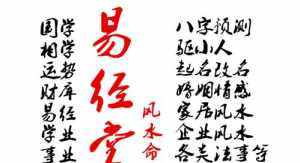 易经堂
风水命
国学
相学
运势
财库
易经
学业
事业
八字预测
驱小人
起名改名
婚姻情感
家居风水
企业风水
各类法事等